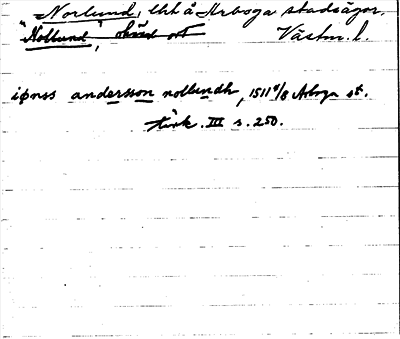 Norlund, lht å Arboga stadsägor.
"Nollund", okänd ort Västm. l.
iønss andersson nollundh, 1511 4/8 Arboga st.
tänk. III s. 250.